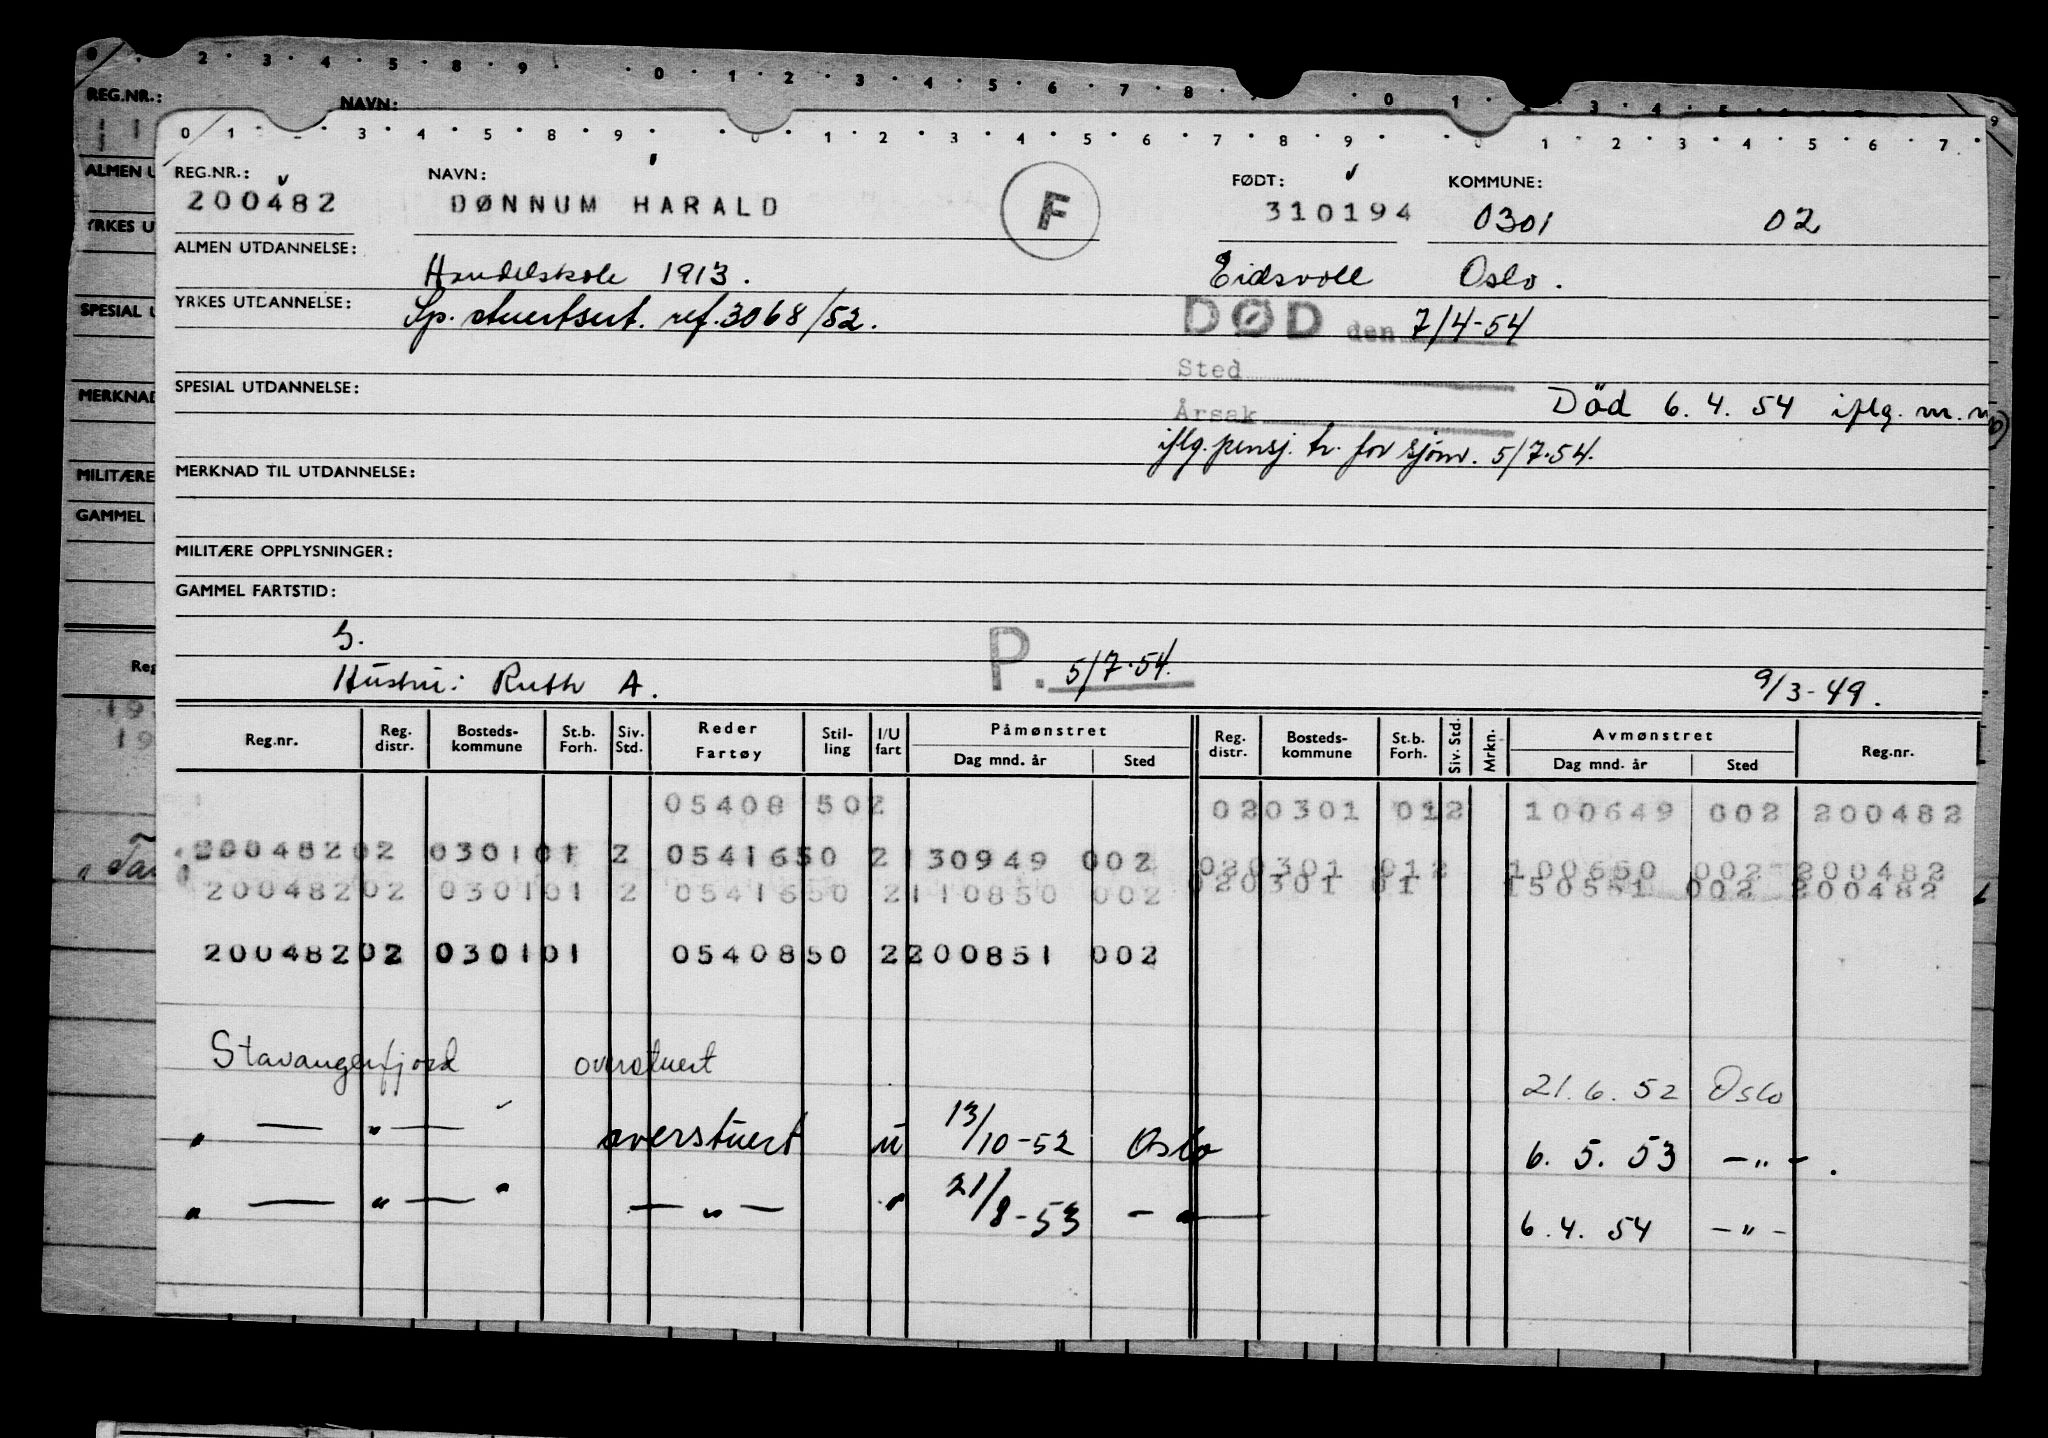 2 · 3 · 4 · 5 · 8 · 9 · 0 · 1 · 2 · 3 · 4 · 5 · 6 · 7 · 8 · 0 · 1 · 2 · 3 · 4 · 5 · 9
REG.NR.: NAVN:
ALMEN U
YRKES U
SPESIAL U
MERKNAD
MILITÆRE
GAMMEL
Reg
0 1 · 3 · 4 · 5 · 8 · 9 · 0 · 1 · 2 · 3 · 4 · 5 · 6 · 7 · 8 · 9 · 0 · 1 · 2 · 3 · 4 · 5 · 6 · 7 ·
REG.NR.: NAVN: FØDT: KOMMUNE:
200482 DØNNUM HARALD F 310194 0301 02
ALMEN UTDANNELSE: Handelskole 1913. Eidsvoll Oslo.
YRKES UTDANNELSE: Sp. stuertsert. ref. 3068/52. DØD den 7/4-54
Sted
SPESIAL UTDANNELSE: Död 6.4.54 iflg. m.m.
Årsak
iflg. pensj. tr. for sjøm. 5/7-54.
MERKNAD TIL UTDANNELSE:
MILITÆRE OPPLYSNINGER:
GAMMEL FARTSTID:
G.
Hustru: Ruth A. P. 5/7-54. 9/3-49.
Reg.nr. Reg. distr. Bosteds-kommune St.b. Forh. Siv. Std. Reder Fartøy Stil-ling I/U fart Påmønstret Dag mnd. år Sted Reg. distr. Bosteds-kommune St.b. Forh. Siv. Std. Mrkn. Avmønstret Dag mnd. år Sted Reg.nr.
05408 502 020301 012 100649 002 200482
20048202 030101 2 0541650 2130949 002 020301 012 100650 002 200482
20048202 030101 2 0541650 2110850 002 020301 01 150551 002 200482
20048202 030101 0540850 2200851 002
Stavangerfjord overstuert 21.6.52 Oslo
" — " — " overstuert u 13/10-52 Oslo 6.5.53 — " — .
" — " — " — " — " 21/8-53 — " — 6.4.54 — " —